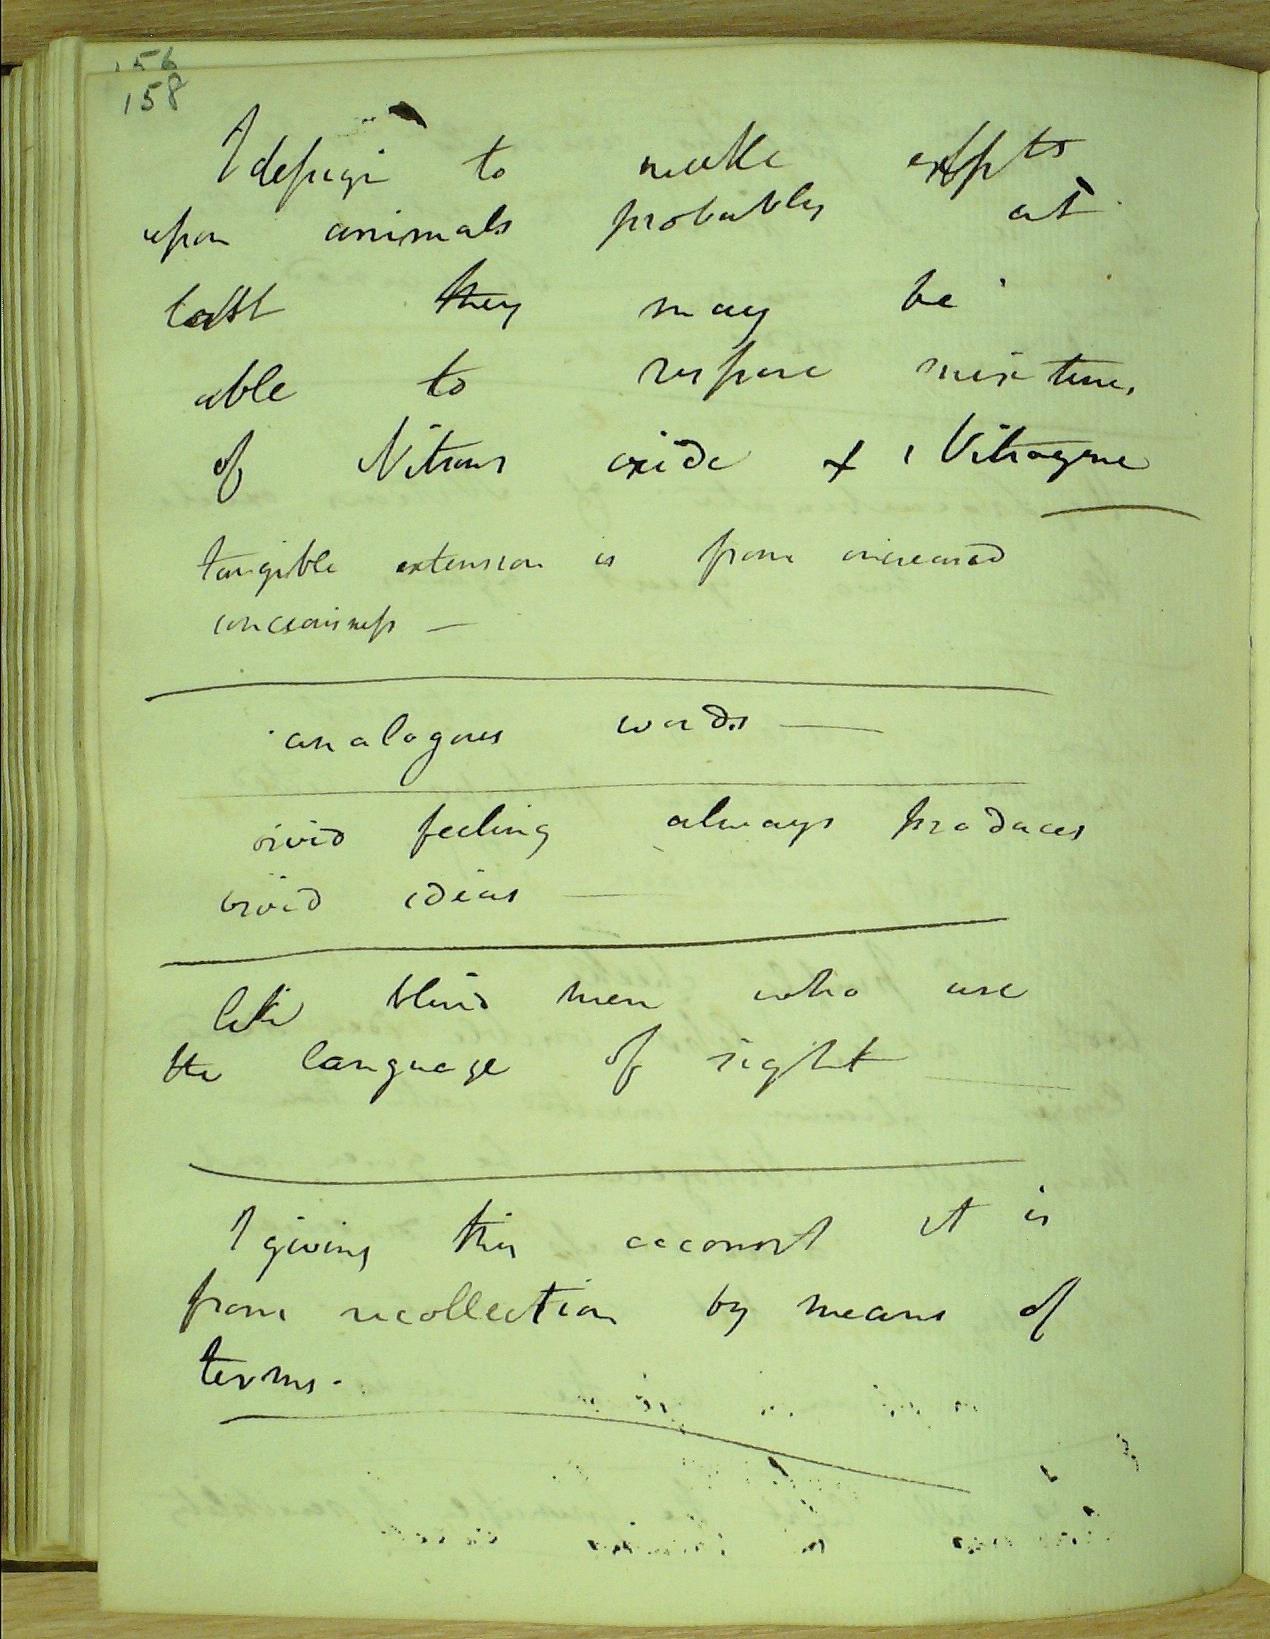 156
158
I design to make expts
upon animals probably at
last they may be
able to respire mixtures
of Nitrous oxide & Nitrogene
tangible extension is from increased
consciousness —
analogous words —
vivid feeling always produces
vivid ideas —
like blind men who use
the language of sight
I giving this account it is
from recollection by means of
terms.